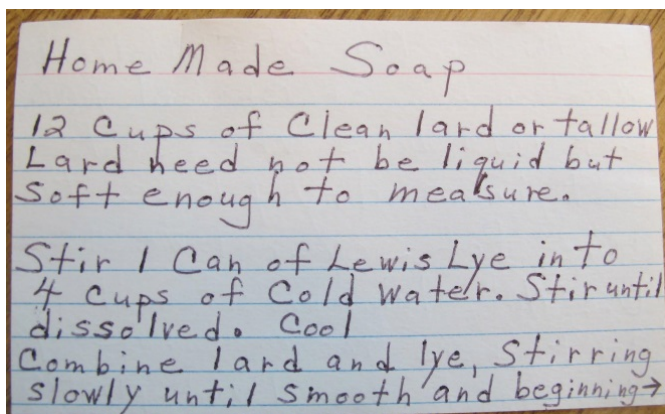 Home Made Soap
12 Cups of Clean lard or tallow
Lard need not be liquid but
Soft enough to measure.
Stir 1 Can of Lewis Lye in to
4 Cups of Cold Water. Stir until
dissolved. Cool
Combine lard and lye, Stirring
slowly until smooth and beginning→